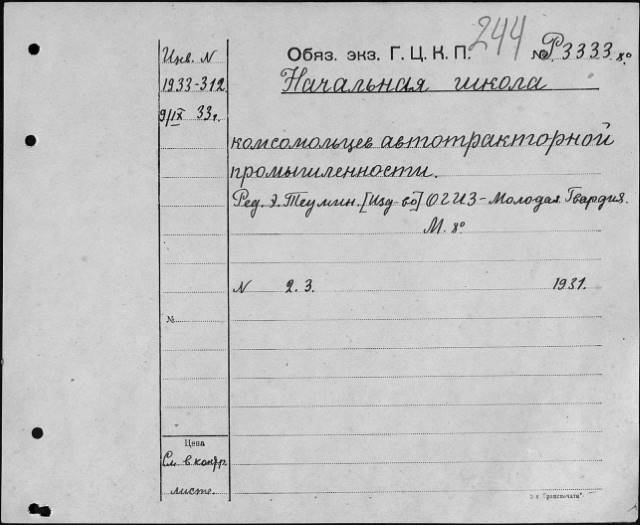 244
Инв. N Обяз. экз. Г. Ц. К. П. № Р3333 8º
1933-312 Начальная школа
9/IX 33 г.
комсомольцев автотракторной
промышленности.
Ред. Э. Теумин. [Изд-во] ОГИЗ-Молодая Гвардия.
М. 8º
N 2. 3. 1931.
№
Цена
См. в контр.
листе.